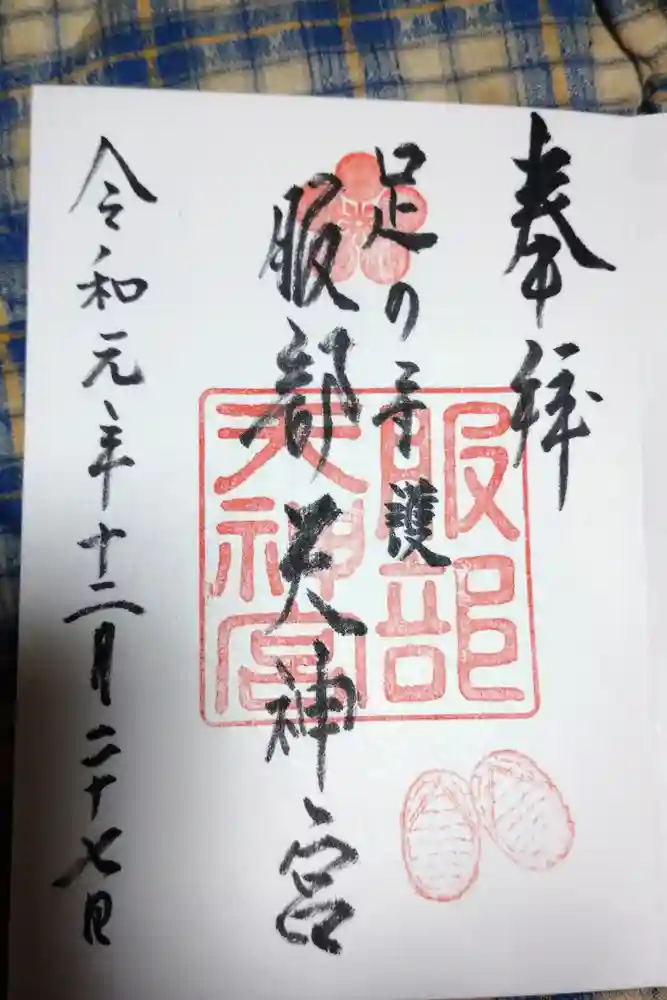 奉拝
足の守護
服部天神宮
令和元年十二月二十七日
服部
天神宮